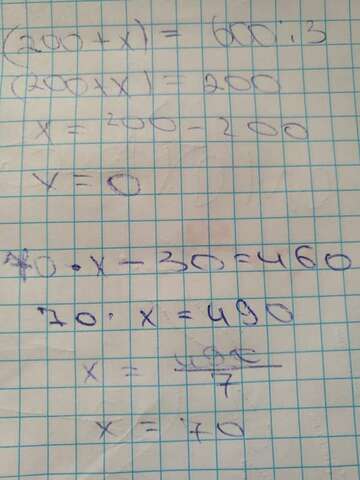 (200+x) = 600:3
(200+x) = 200
x = 200 - 200
x = 0
70 · x - 30 = 460
70 · x = 490
x = 490/7
x = 70